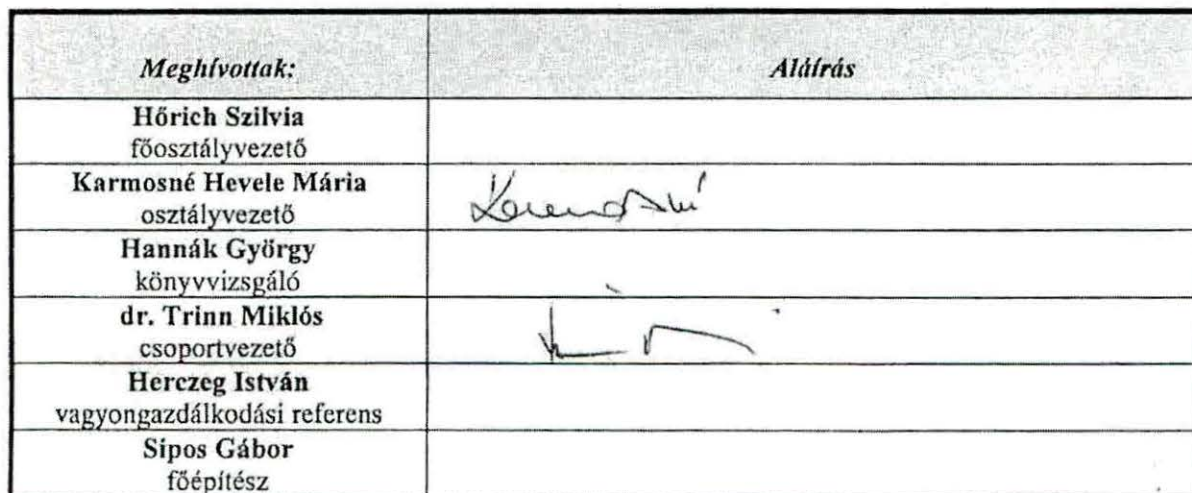 Meghívottak: Aláírás
Hőrich Szilvia
főosztályvezető
Karmosné Hevele Mária
osztályvezető
Hannák György
könyvvizsgáló
dr. Trinn Miklós
csoportvezető
Herczeg István
vagyongazdálkodási referens
Sipos Gábor
főépítész